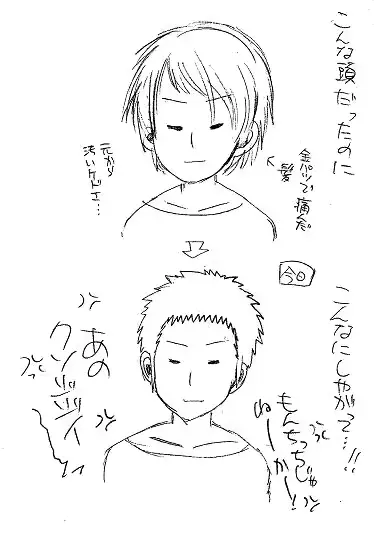 こんな頭だったのに
金パツで痛んだ
髪
元から
汚いケドェ…
今日
こんなにしやがって…!!
もんちっちじゃ
ねーかー!
あの
クソジジィ